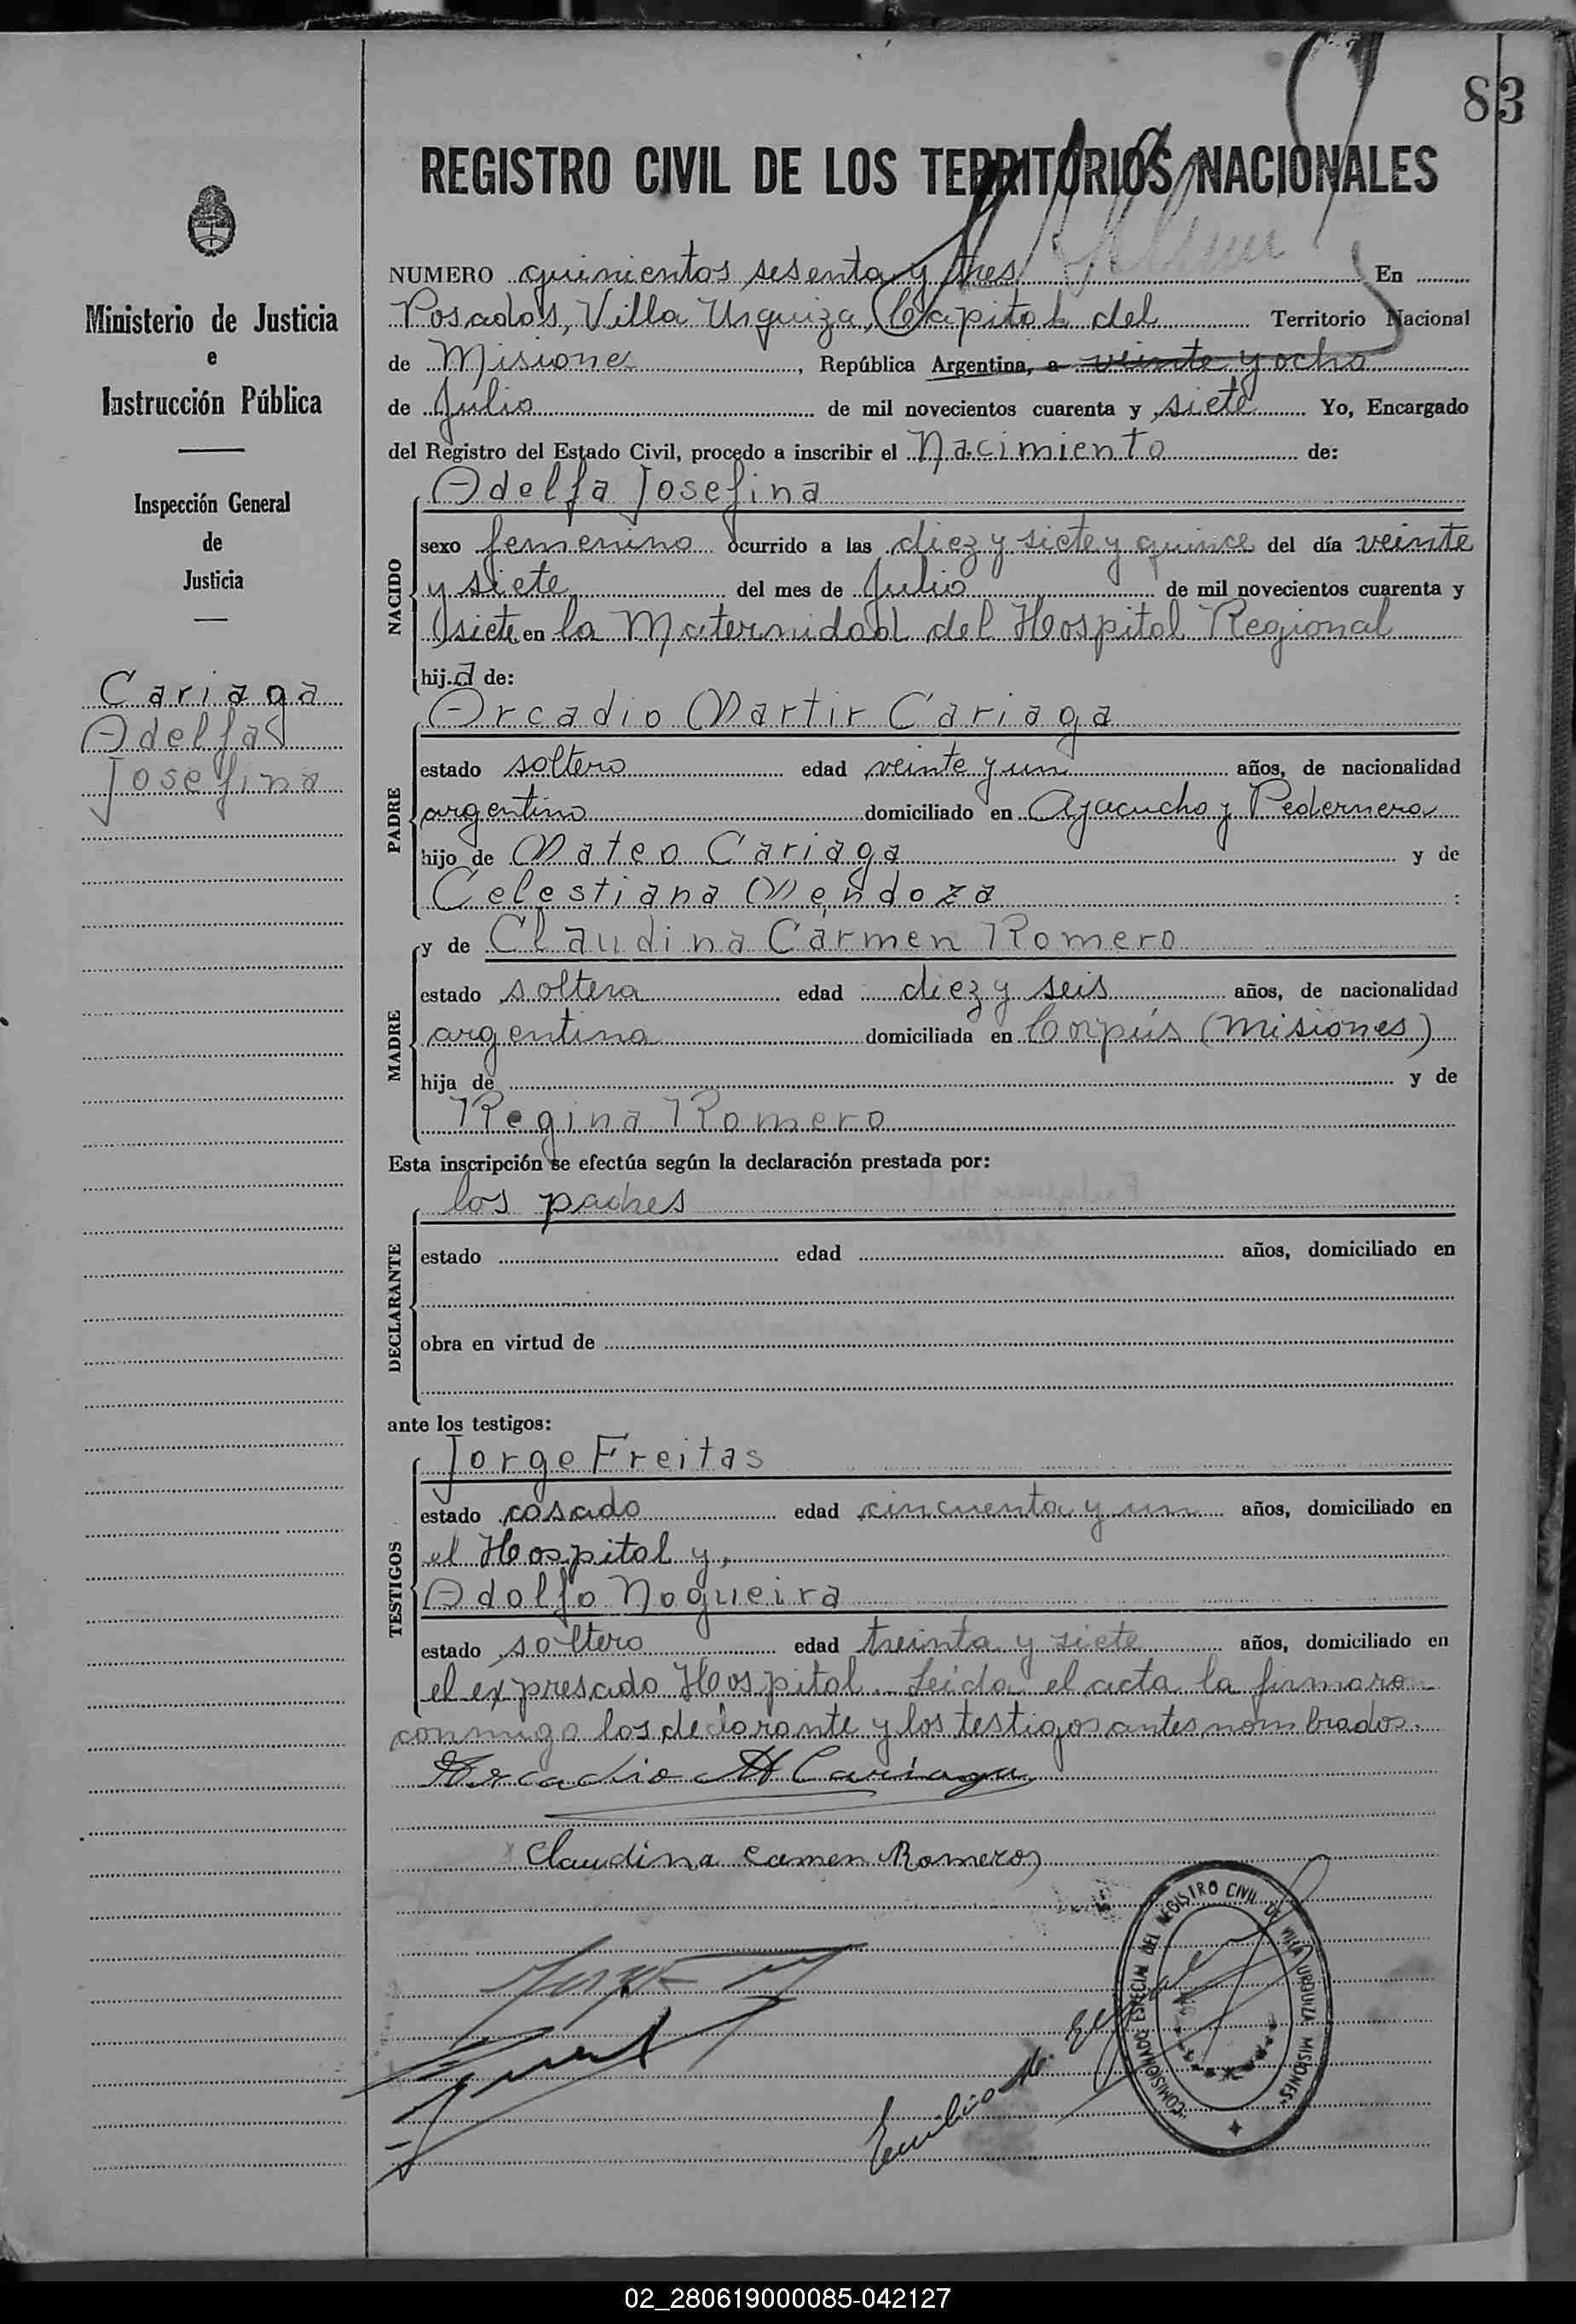 83
REGISTRO CIVIL DE LOS TERRITORIOS NACIONALES
Ministerio de Justicia
e
Instrucción Pública
Inspección General
de
Justicia
Cariaga
Adelfa
Josefina
NUMERO quinientos sesenta y tres En
Posadas, Villa Urquiza, Capital del Territorio Nacional
de Misiones, República Argentina, a veinte y ocho
de Julio de mil novecientos cuarenta y siete Yo, Encargado
del Registro del Estado Civil, procedo a inscribir el Nacimiento de:
NACIDO
Adelfa Josefina
sexo femenino ocurrido a las diez y siete y quince del día veinte
y siete del mes de Julio de mil novecientos cuarenta y
siete en la Maternidad del Hospital Regional
hija de:
PADRE
Arcadio Martir Cariaga
estado soltero edad veinte y un años, de nacionalidad
argentino domiciliado en Ayacucho y Pedernera
hijo de Mateo Cariaga y de
Celestiana Mendoza :
MADRE
y de Claudina Carmen Romero
estado soltera edad diez y seis años, de nacionalidad
argentina domiciliada en Corpús (Misiones)
hija de y de
Regina Romero
Esta inscripción se efectúa según la declaración prestada por:
DECLARANTE
los padres
estado edad años, domiciliado en
obra en virtud de
ante los testigos:
TESTIGOS
Jorge Freitas
estado casado edad cincuenta y un años, domiciliado en
el Hospital y,
Adolfo Nogueira
estado soltero edad treinta y siete años, domiciliado en
el expresado Hospital. Leida el acta la firmaron
conmigo los declarante y los testigos antes nombrados.
Arcadio M Cariaga
Claudina Carmen Romero
Emilio
"COMISIONADO ESPECIAL DEL REGISTRO CIVIL DE VILLA URQUIZA MISIONES"
02_280619000085-042127